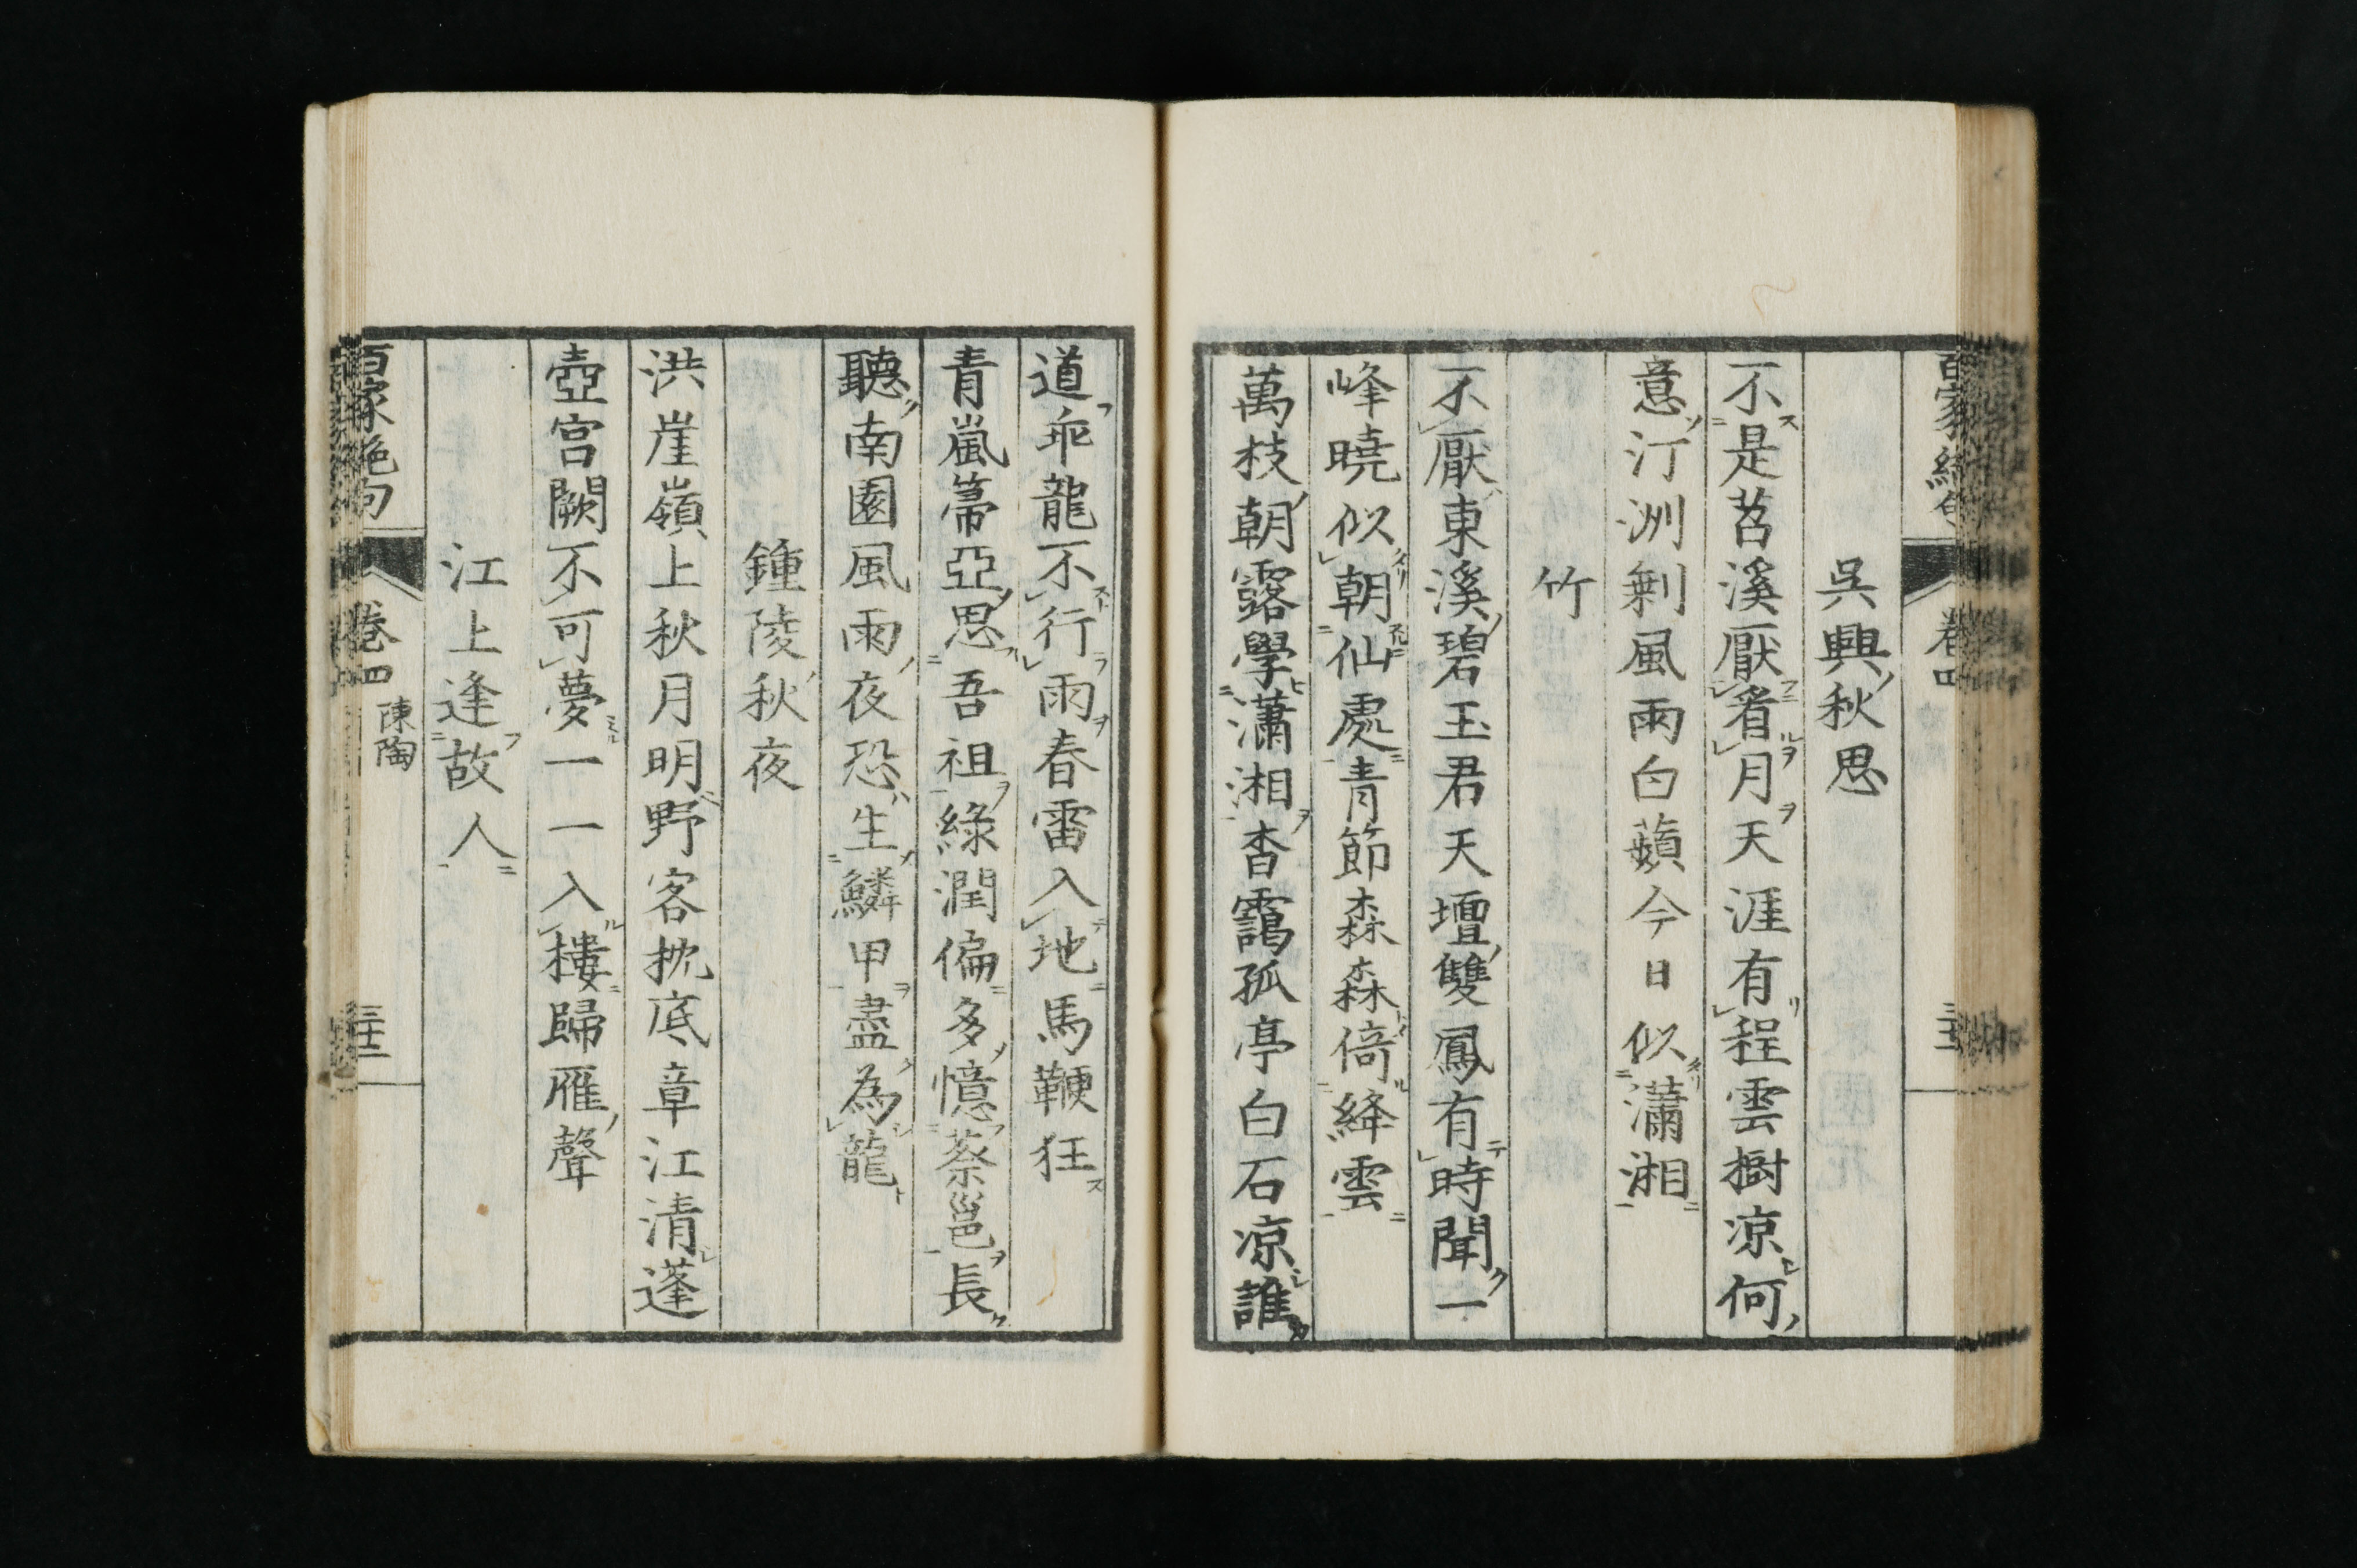 吳興秋思
不是苕溪厭看月天涯有程雲樹涼何
意汀洲剩風雨白蘋今日似瀟湘
竹
不厭東溪碧玉君天壇雙鳳有時聞一
峰曉似朝仙處青節森森倚絳雲
萬枝朝露學瀟湘杳靄孤亭白石凉誰
道乖龍不行雨春雷入地馬鞭狂
青嵐帚亞思吾祖綠潤偏多憶蔡邕長
聽南園風雨夜恐生鱗甲盡為龍
鍾陵秋夜
洪崖嶺上秋月明野客枕底章江清蓬
壺宮闕不可夢一一入樓歸雁聲
江上逢故人
百家絶句
卷四
陳陶